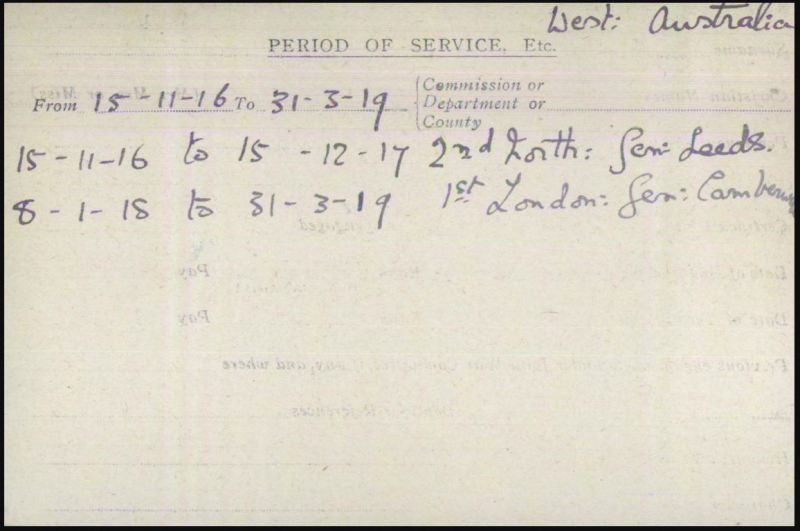 West: Australia
PERIOD OF SERVICE, Etc.
From 15-11-16 To 31-3-19 Commission or
Department or
County
15-11-16 to 15-12-17 2nd North: Gen: Leeds.
8-1-18 to 31-3-19 1st London: Gen: Camberwell
Pay
Pay